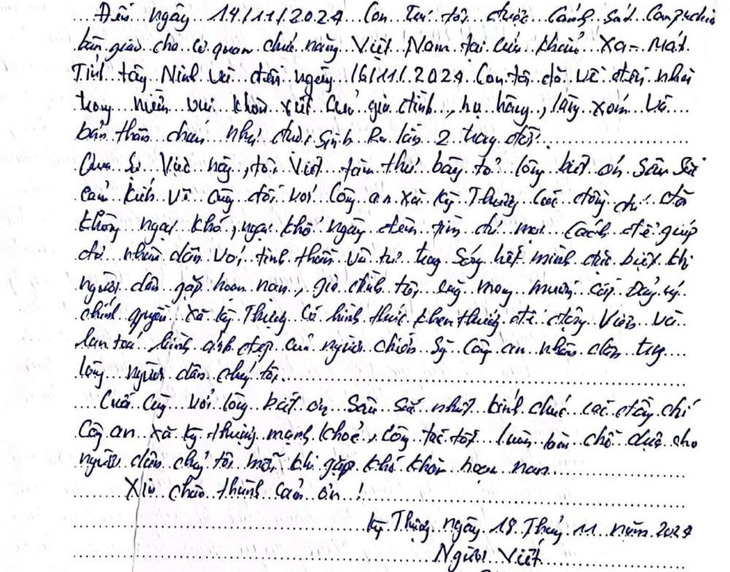 Đến ngày 14/11/2024 Con trai tôi được cảnh sát Campuchia
bàn giao cho cơ quan chức năng Việt Nam tại cửa khẩu Xa-Mát
Tỉnh tây Ninh và đến ngày 16/11/2024 Con tôi đã về đến nhà
trong niềm vui khôn xiết của gia đình, họ hàng, làng xóm và
bản thân cháu như được sinh ra lần 2 trong đời.
Qua sự việc này, tôi viết tâm thư bày tỏ lòng biết ơn Sâu Sắc
cảm kích vô cùng đối với Công an xã Kỳ Thượng các đồng chí đã
không ngại khó, ngại khổ ngày đêm tìm đủ mọi cách để giúp
đỡ nhân dân với tinh thần và tư hết mình đặc biệt khi
người dân gặp hoạn nạn, gia đình tôi mong muốn cấp Đảng uỷ
chính quyền xã Kỳ Thượng có hình thức khen thưởng để động viên và
lan toả hình ảnh đẹp của người chiến Sỹ công an nhân dân trong
lòng người dân chúng tôi.
Cuối cùng với lòng biết ơn sâu sắc nhất kính chúc các đồng chí
Công an xã Kỳ thượng mạnh khoẻ, công tác tốt luôn là chỗ dựa cho
người dân chúng tôi mỗi khi gặp khó khăn hoạn nạn.
Xin chân thành cảm ơn!
Kỳ Thượng ngày 18 Tháng 11 năm 2024
Người Viết